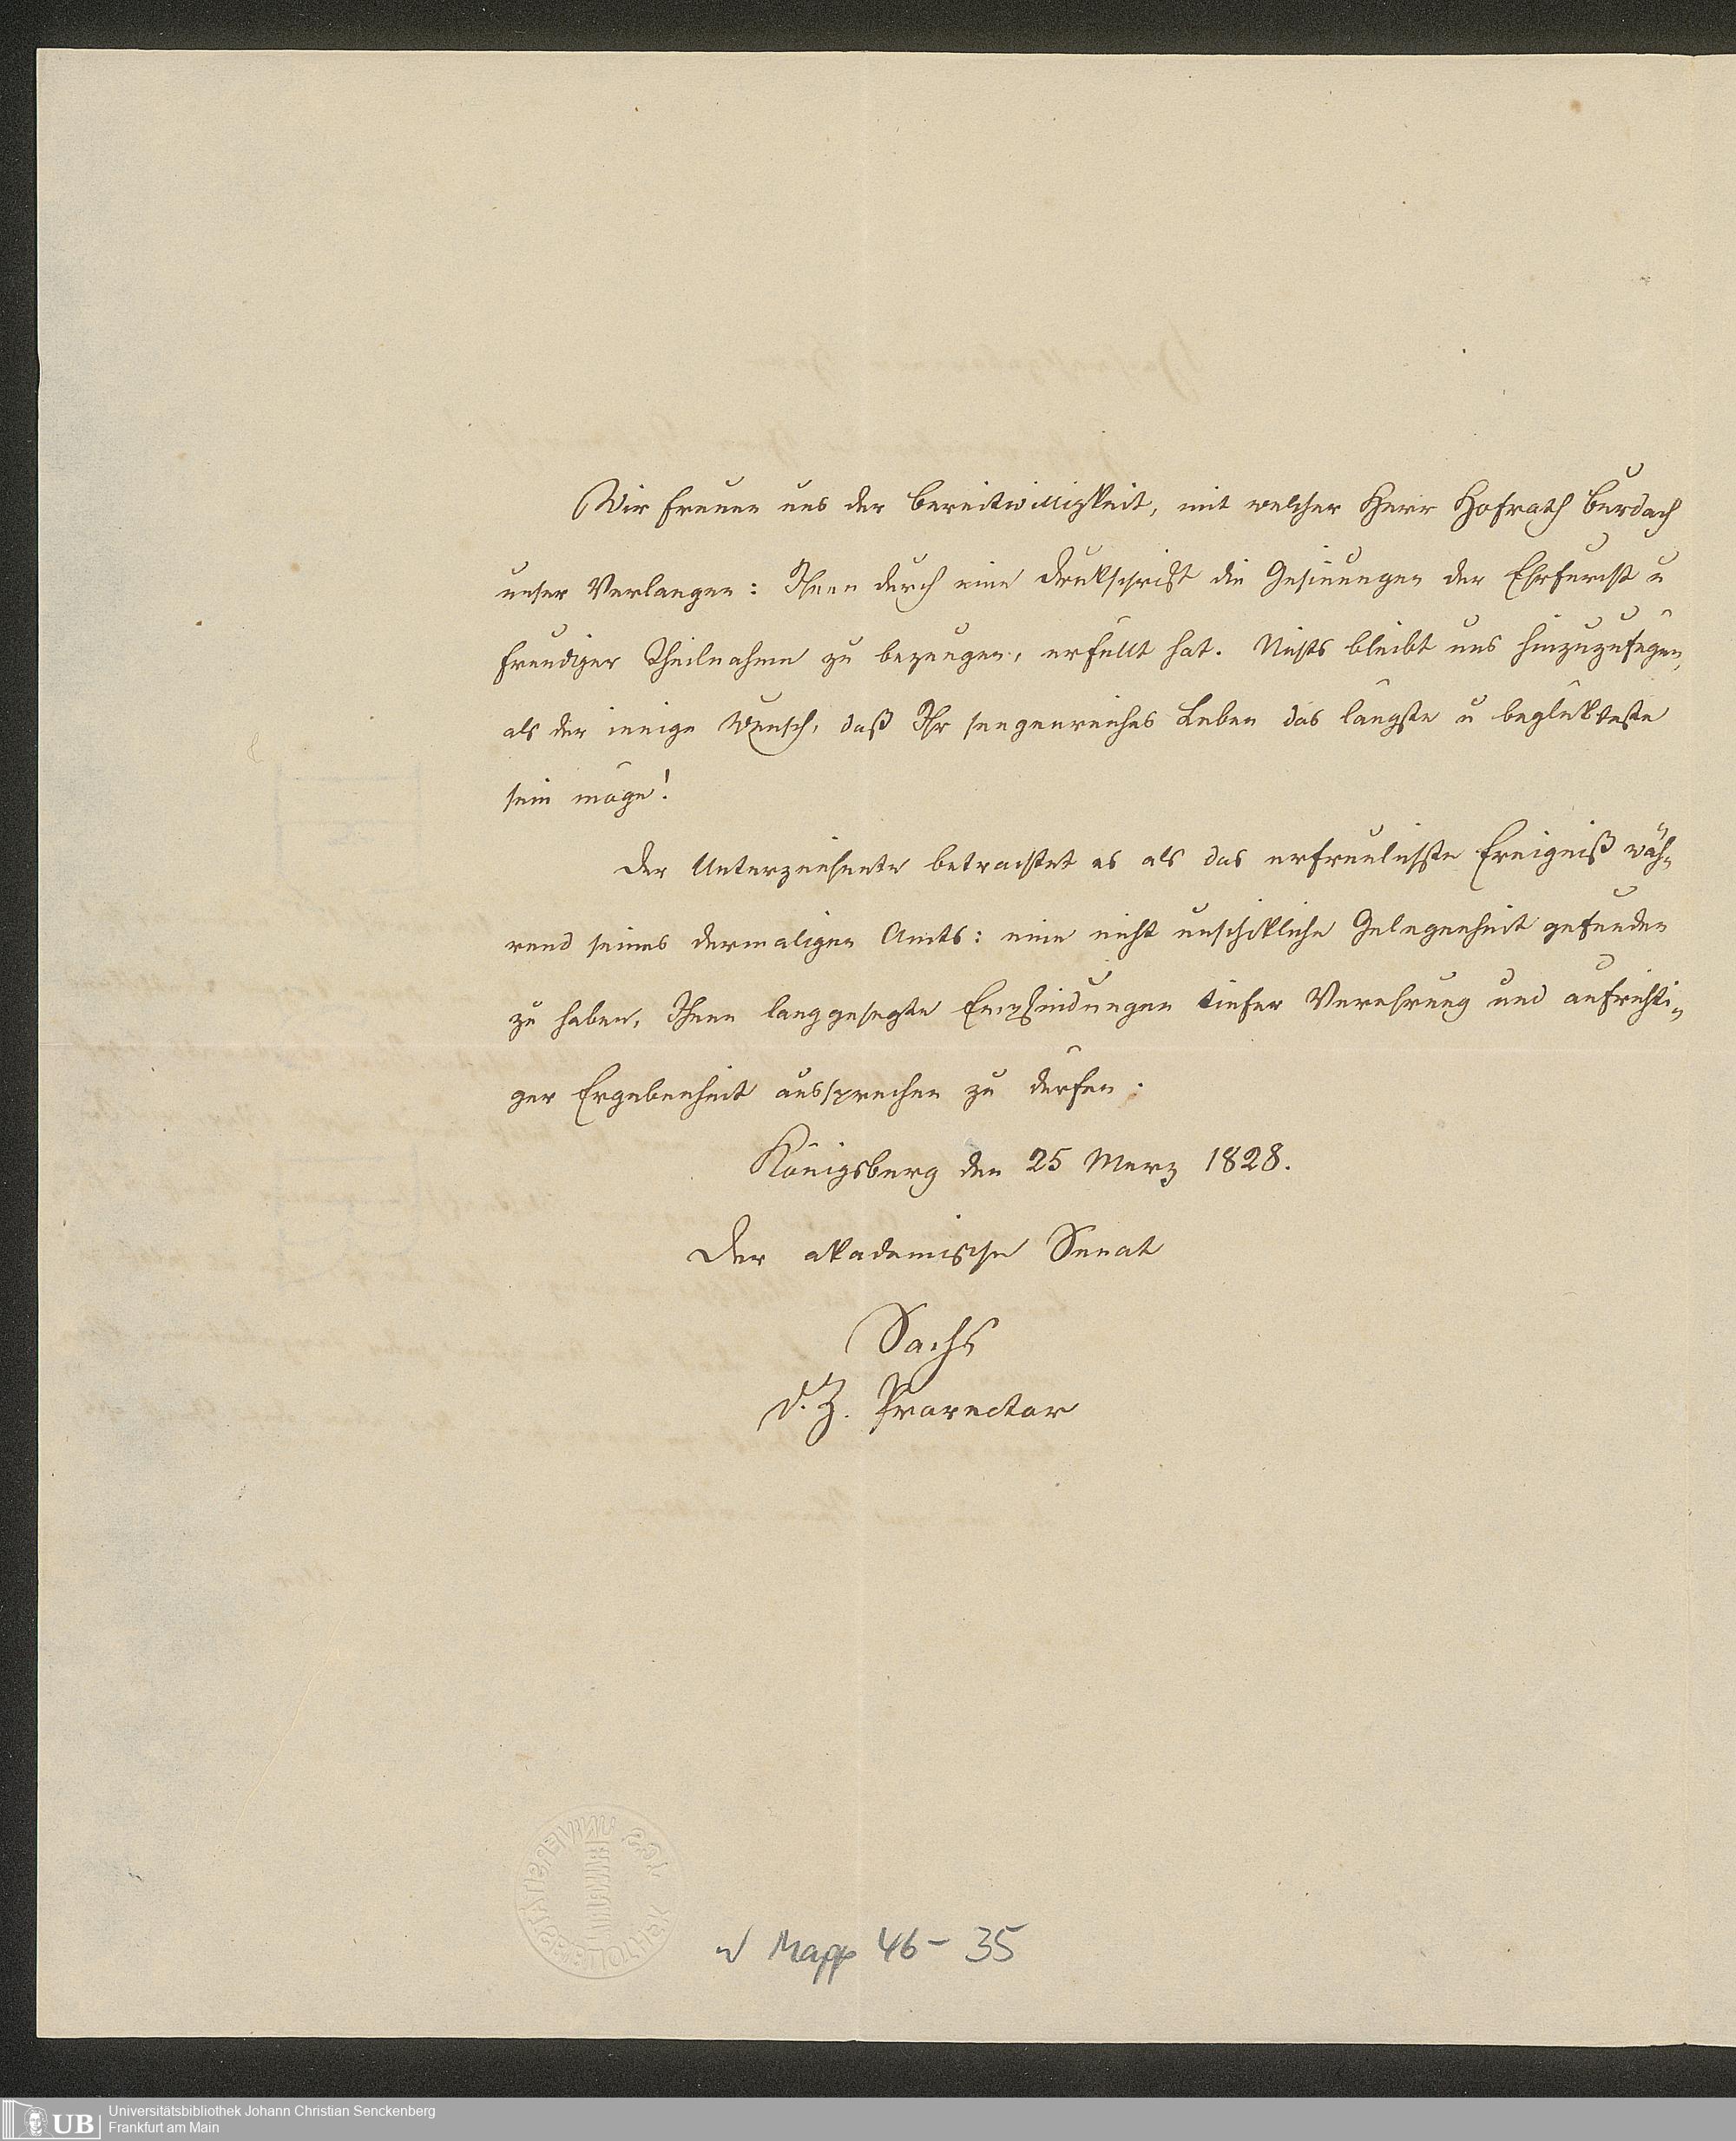 Wir freuen uns der Bereitwilligkeit, mit welcher Herr Hofrath Burdach
unser Verlangen: Ihnen durch eine Drukschrift die Gesinungen der Ehrfurcht u
freudiger Theilnahme zu bezeugen, erfüllt hat. Nichts bleibt uns hinzuzufügen,
als der innige Wunsch, daß Ihr seegenreiches Leben das längste u beglükteste
sein möge!
Der Unterzeichnete betrachtet es als das erfreulichste Ereigniß wäh-
rend seines dermaligen Amts: eine nicht unschikliche Gelegenheit gefunden
zu haben, Ihnen langgehegte Empfindungen tiefer Verehrung und aufrichti-
ger Ergebenheit aussprechen zu dürfen.
Königsberg den 25 Merz 1828.
Der akademische Senat
Sachs
d. Z. Prorector
Mapp 46-35
UB Universitätsbibliothek Johann Christian Senckenberg
Frankfurt am Main